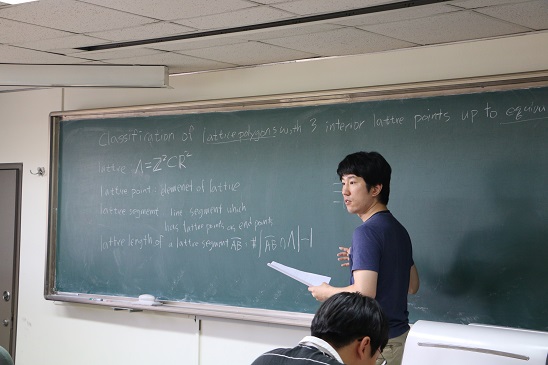 Classification of lattice polygons with 3 interior lattice points up to equiv
lattice Λ=Z²⊂R²
lattice point : element of lattice
lattice segment line segment which
has lattice points as end points
lattice length of a lattice segment AB : #|AB∩Λ|-1